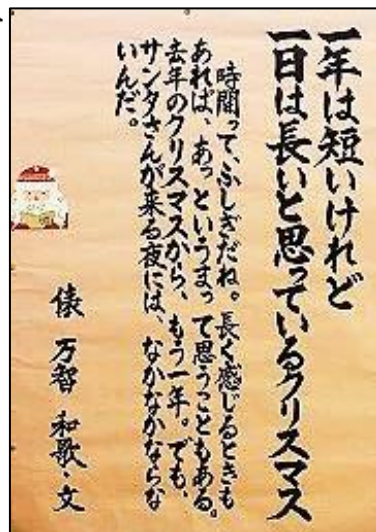 一年は短いけれど
一日は長いと思っているクリスマス
時間って、ふしぎだね。長く感じるときも
あれば、あっというまって思うこともある。
去年のクリスマスから、もう一年。でも、
サンタさんが来る夜には、なかなかならな
いんだ。
俵 万智 和歌・文